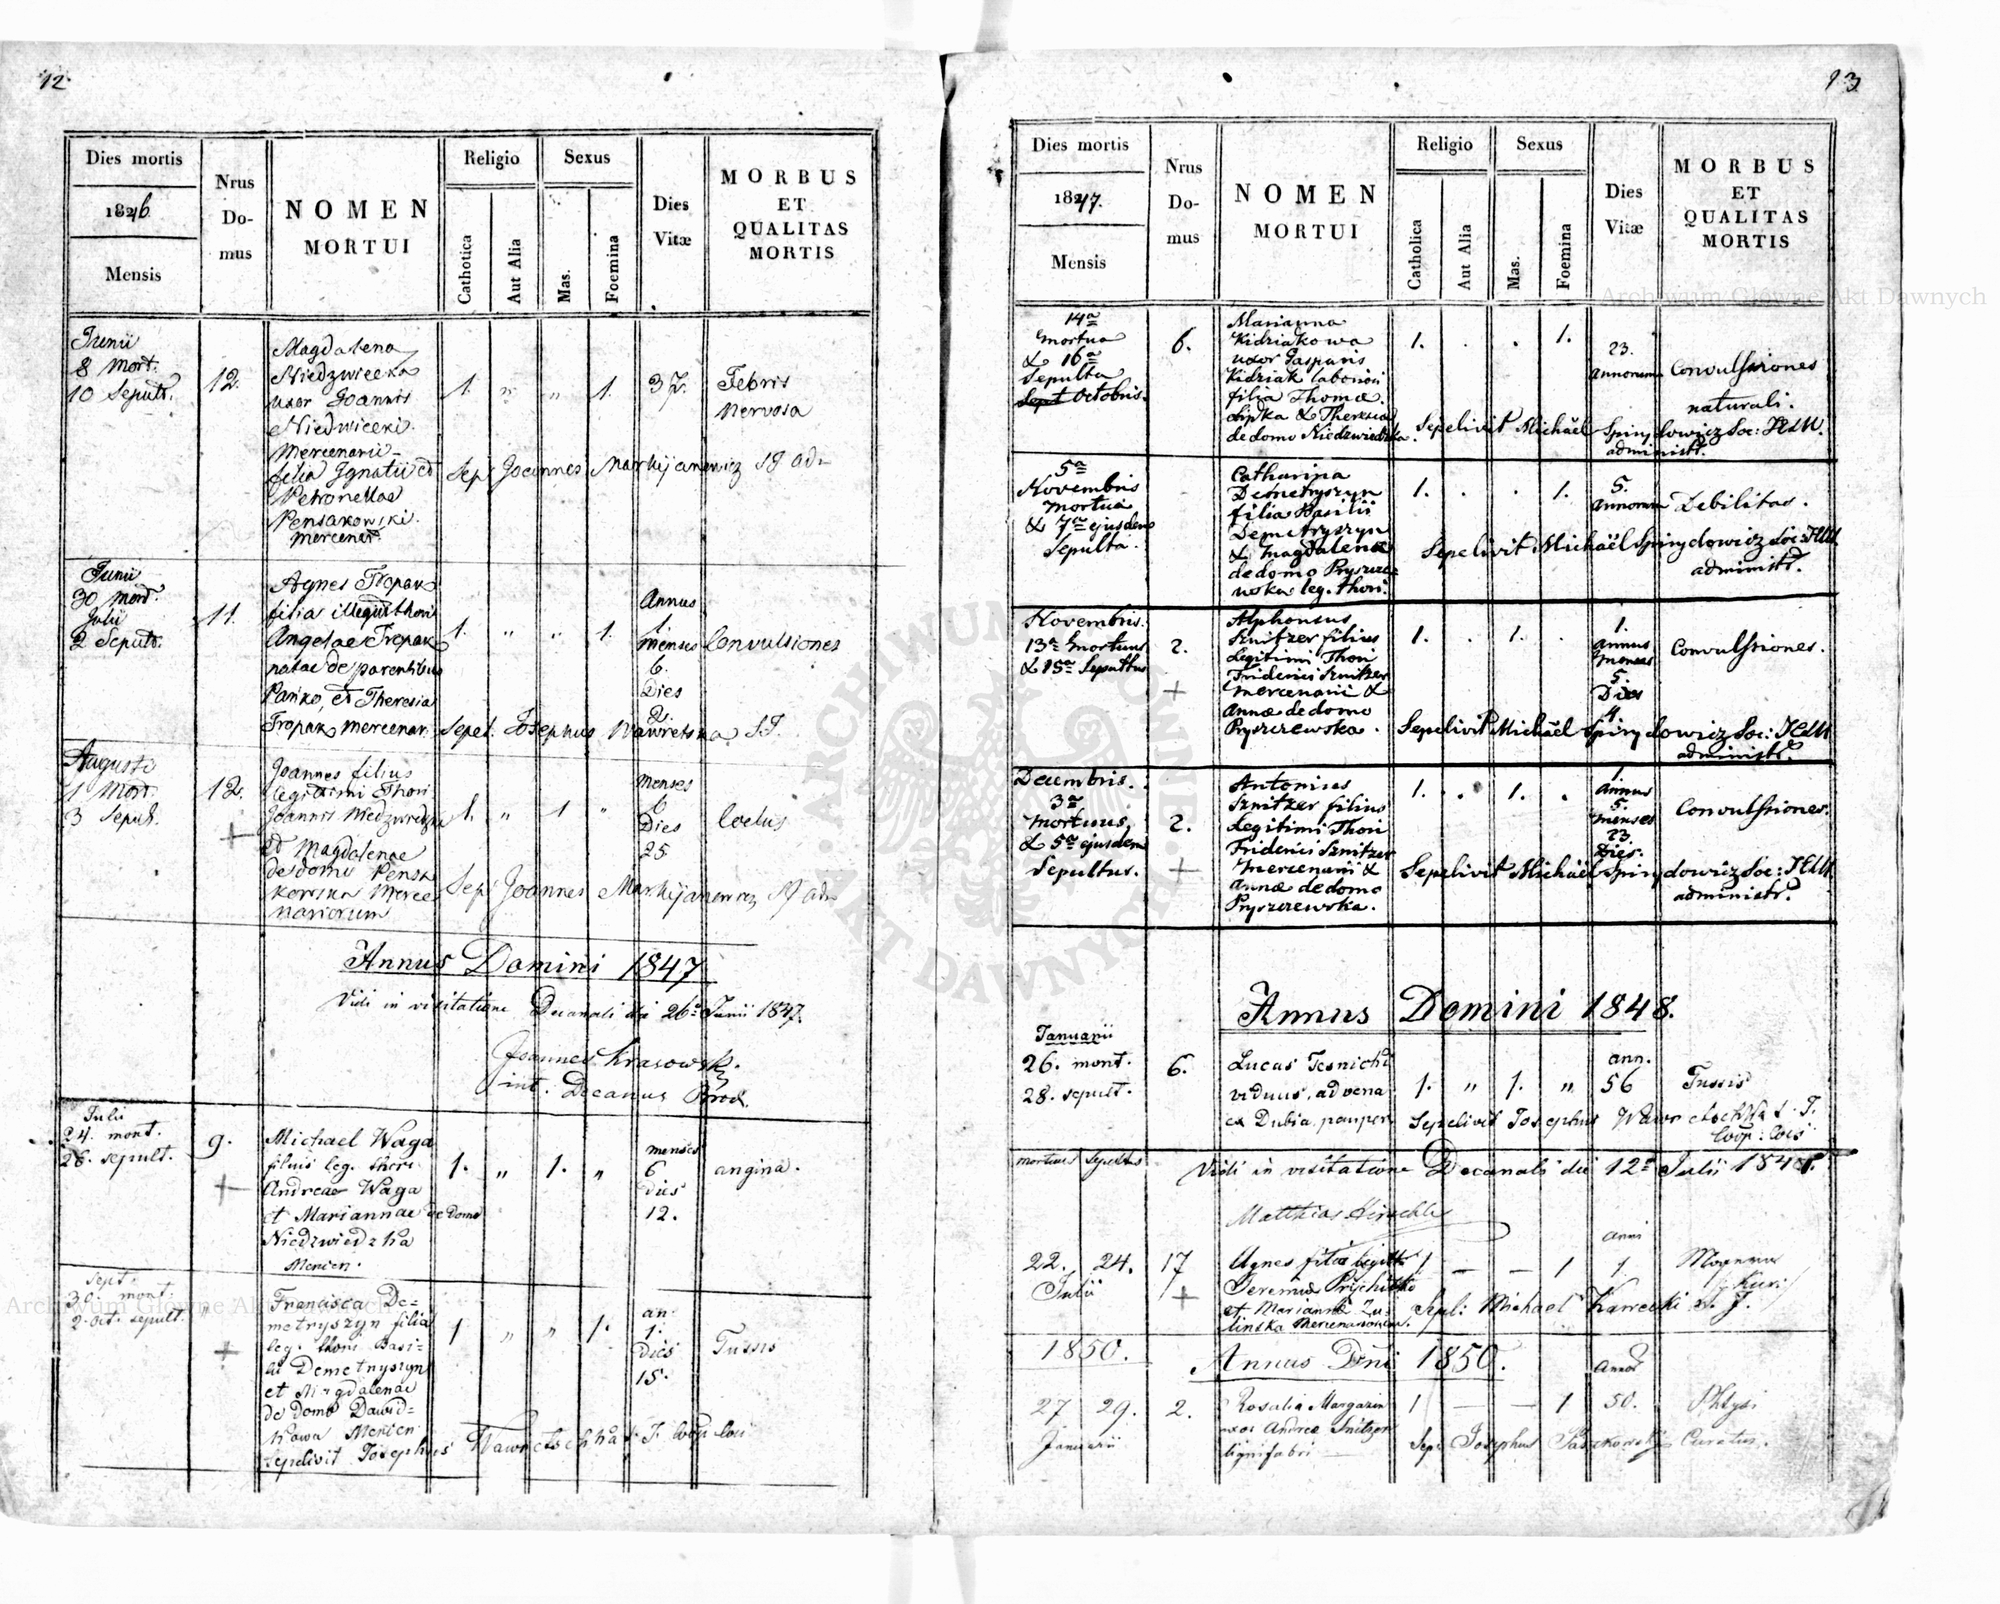 12.
Dies mortis
1846.
Mensis
Nrus
Do-
mus
NOMEN
MORTUI
Religio
Cathotica
Aut Alia
Sexus
Mas.
Foemina
Dies
Vitæ
MORBUS
ET
QUALITAS
MORTIS
Junii
8 Mort.
10 Sepult.
12.
Magdalena
Niedzwiecka
uxor Joannis
Niedwiecki
Mercenarii
filia Ignatii et
Petronellae
Pensakowski
mercenar.
1.
"
"
1.
37.
Febris
Nervosa
Sep. Joannes Markijanowicz SJ adm
Junii
30 Mort.
Julii
2 Sepult.
11.
Agnes Tropak
filia illegit thori
Angelae Tropak
natae de parentibus
Panko, et Theresia
Tropak mercenar.
1.
"
"
1.
Annus
1.
menses
6.
Dies
2.
Convulsiones
Sepel. Josephus Wawretska SJ.
Augusti
1 Mort.
3 Sepult.
12.
+
Joannes filius
legitimi Thori
Joannis Niedzwiedzki
et Magdalenae
de domo Pensa
kowska Merce
nariorum
1.
"
1
"
Menses
6
Dies
25.
Sep. Joannes Markijanowicz SJ adm
Annus Domini 1847
Vidi in visitatione Decanali die 26a Junii 1847.
Joannes Krasowski
int. Decanus Brod.
Julii
24. mort.
26. sepult.
9.
+
Michael Waga
filius leg. thori
Andreae Waga
et Mariannae de domo
Niedzwiedzka
Mercen.
1.
"
1.
"
menses
6
dies
12.
angina.
Sept.
30. mort.
2. Oct. sepult.
"
+
Francisca De=
metryszyn filia
leg. thori Basi=
lii Demetryszyn
et Magdalenae
de domo Dawid=
kowa Mercen.
sepelivit Josephus Wawretschka S. J. coop. loci
1
"
"
1.
an:
1.
Dies
15.
Tussis
13
Dies mortis
1847.
Mensis
Nrus
Do-
mus
NOMEN
MORTUI
Religio
Catholica
Aut Alia
Sexus
Mas.
Foemina
Dies
Vitæ
MORBUS
ET
QUALITAS
MORTIS
14a
mortua
& 16a
Sepulta
Sept Octobris.
6.
Marianna
Kidziakowa
uxor Gasparis
Kidziak laboriosi
filia Thomæ
Lipka & Theresiæ
de domo Niedzwiedzka.
1.
.
.
1.
23.
annorum
Convulsiones
naturali.
Sepelivit Michaël Spirydowicz Soc: JESU
administr.
5a
Novembris
mortua
& 7a ejusdem
Sepulta.
Catharina
Demetryszyn
filia Basilii
Demetryszyn
& Magdalenæ
de domo Pryszcze
wska leg. thori.
1.
.
.
1.
5.
annorum
Debilitas.
Sepelivit Michaël Spirydowicz Soc: JESU
administr.
Novembris.
13a mortuus
& 15a Sepultus
2.
+
Alphonsus
Sznitzer filius
Legitimi Thori
Friderici Sznitzer
mercenarii &
Annæ de domo
Pryszczewska.
1.
.
1.
.
1.
annus
menses
5.
Dies
4.
Convulsiones.
Sepelivit Michaël Spirydowicz Soc: JESU
administr.
Decembris.
3a
mortuus,
& 5a ejusdem
Sepultus.
2.
+
Antonius
Sznitzer filius
Legitimi Thori
Friderici Sznitzer
mercenarii &
Annæ de domo
Pryszczewska.
1.
.
1.
.
1.
annus
5.
menses
23.
Dies.
Convulsiones.
Sepelivit Michaël Spirydowicz Soc: JESU
administr.
Annus Domini 1848.
Januarii
26. mort.
28. sepult.
6.
Lucas
viduus, advena
ex Dubia, pauper
1.
"
1.
"
ann.
56
Tussis
Sepelivit Josephus Wawretschka S. J.
coop: loci
mortuus Sepultus
Vidi in visitatione Decanali die 12a Julii 1848.
Matthias
22. 24.
Julii
17
+
Agnes filia legitt
Jeremiæ
et Marianna Zu
linska Mercenariorum.
1
—
—
1
anni
1.
Sepel: Michael Kawecki S. J.
1850.
Annus Dni 1850.
27 29.
Januarii
2.
Rosalia Margazin
uxor Andreæ Snitzer
lignifabri —
1
—
—
1
Annor
50.
Phtysi
Sep: Josephus Paszkowski Curatus.
Archiwum Główne Akt Dawnych
Archiwum Główne Akt Dawnych
ARCHIWUM GŁÓWNE AKT DAWNYCH